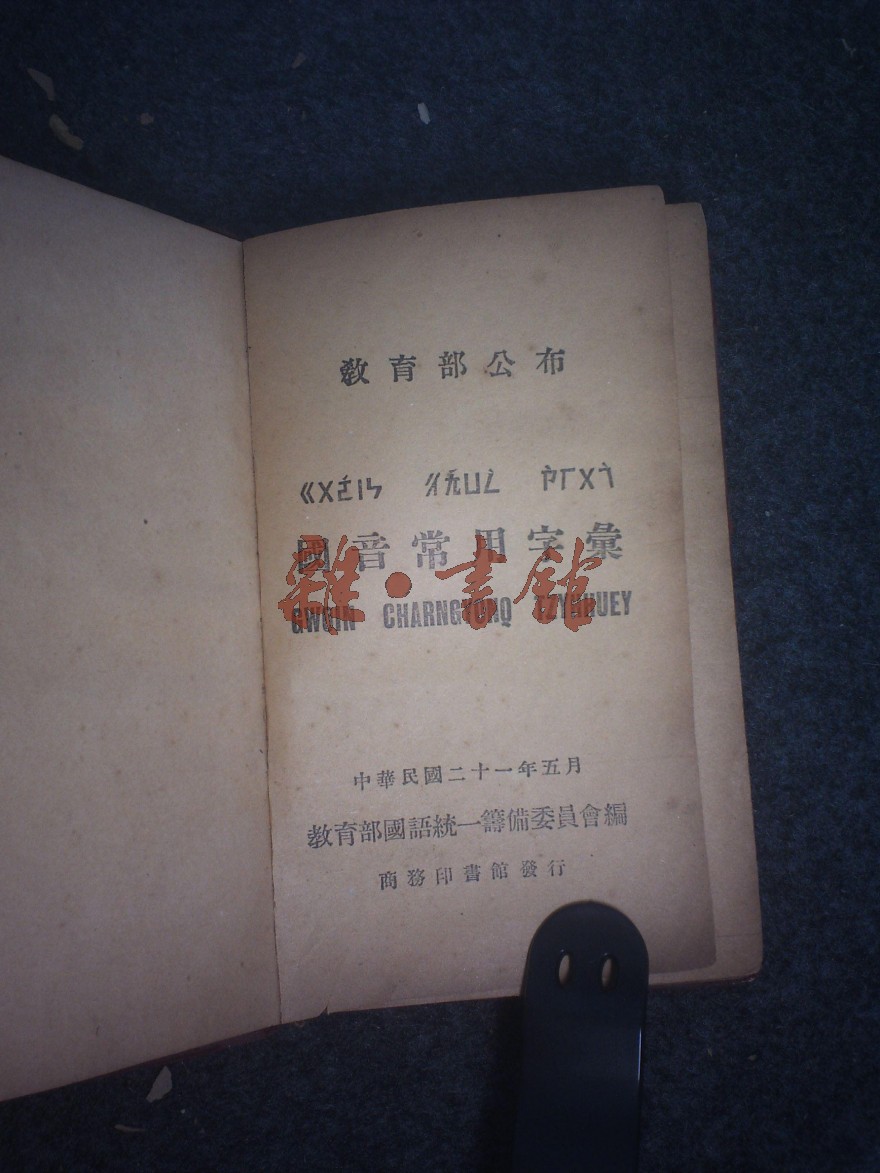 教育部公布
ㄍㄨㄛˊㄧㄣ ㄔㄤˊㄩㄥˋ ㄗˋㄏㄨㄟˋ
國音常用字彙
雜·書館
GWOIN CHARNGYONQ TZYHHUEY
中華民國二十一年五月
教育部國語統一籌備委員會編
商務印書館發行